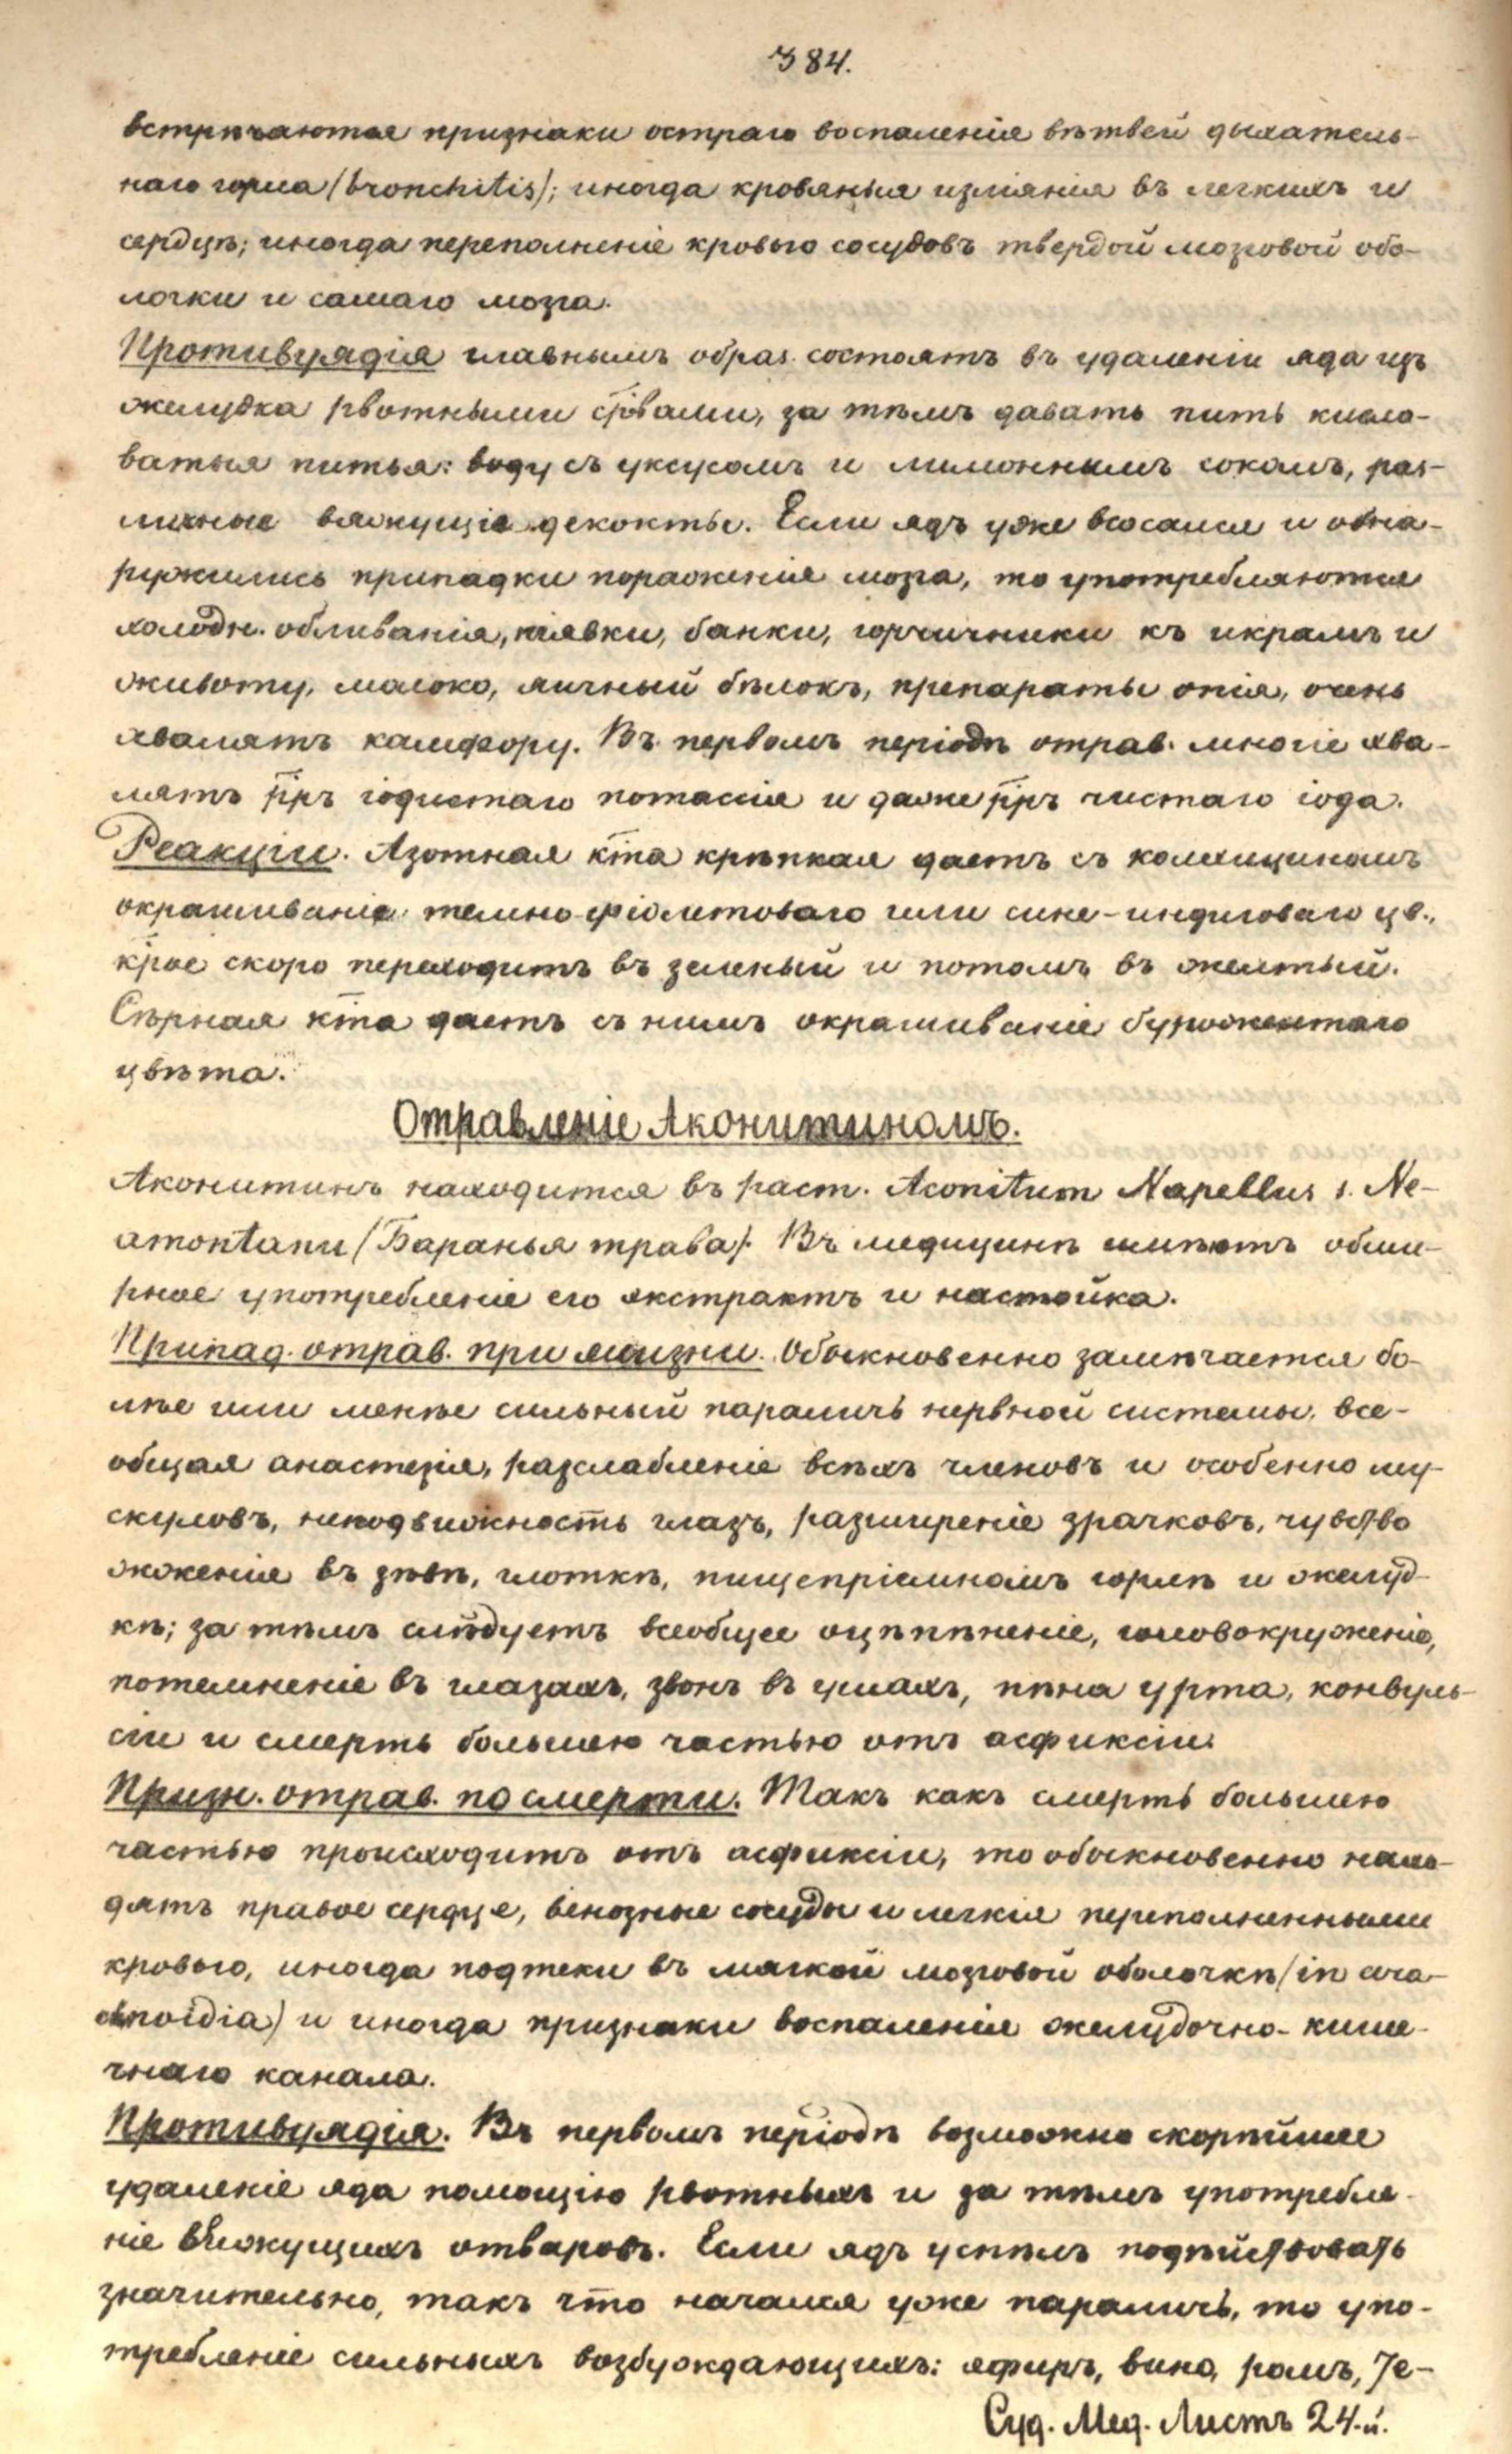 384.
встрѣчаются признаки остраго воспаленія вѣтвей дыхатель-
наго горла (bronchitis); иногда кровяныя изліянія въ легкихъ и
сердцѣ; иногда переполненіе кровью сосудовъ твердой мозговой обо-
лочки и самаго мозга.
Противуядія главнымъ образ. состоятъ въ удаленіи яда изъ
желудка рвотными стр̄вами, за тѣмъ давать пить кисло-
ватыя питья: воду съ уксусомъ и лимоннымъ сокомъ, раз-
личные вяжущіе декокты. Если ядъ уже всосался и обна-
ружились припадки пораженія мозга, то употребляются
холодн. обливанія, піявки, банки, горчичники къ икрамъ и
животу, молоко, яичный бѣлокъ, препараты опія, очень
хвалятъ камфору. Въ первомъ періодѣ отрав. многіе хва-
лятъ р̄пръ іодистаго потассія и даже р̄пръ чистаго іода.
Реакціи. Азотная к̄та крѣпкая даетъ съ колхициномъ
окрашиваніе темно-фіолетоваго или сине-индиговаго цв.,
к̄рое скоро переходитъ въ зеленый и потомъ въ желтый.
Сѣрная к̄та даетъ съ нимъ окрашиваніе буро-желтаго
цвѣта.
Отравленіе Аконитиномъ.
Аконитинъ находится въ раст. Aconitum Napellus s. Ne-
amontanu (Баранья трава). Въ медицинѣ имѣютъ обши-
рное употребленіе его экстрактъ и настойка.
Припад. отрав. при жизни. Обыкновенно замѣчается бо-
лѣе или менѣе сильный параличъ нервной системы, все-
общая анастезія, разслабленіе всѣхъ членовъ и особенно му-
скуловъ, неподвижность глазъ, разширеніе зрачковъ, чувство
жженія въ зѣвѣ, глоткѣ, пищепріемномъ горлѣ и желуд-
кѣ; за тѣмъ слѣдуетъ всеобщее оцѣпѣненіе, головокруженіе,
потемненіе въ глазахъ, звонъ въ ушахъ, пѣна у рта, конвуль-
сіи и смерть большею частью отъ асфиксіи.
Призн. отрав. по смерти. Такъ какъ смерть большею
частью происходитъ отъ асфиксіи, то обыкновенно нахо-
дятъ правое сердце, венозные сосуды и легкія переполненными
кровью, иногда подтеки въ мягкой мозговой оболочкѣ (in ara-
chnoidia) и иногда признаки воспаленія желудочно-кише-
чнаго канала.
Противуядія. Въ первомъ періодѣ возможно скорѣйшее
удаленіе яда помощію рвотныхъ и за тѣмъ употребле-
ніе вяжущихъ отваровъ. Если ядъ успѣлъ подѣйствовать
значительно, такъ что начался уже параличъ, то упо-
требленіе сильныхъ возбуждающихъ: эфиръ, вино, ромъ, те-
Суд. Мед. Листъ 24-й.